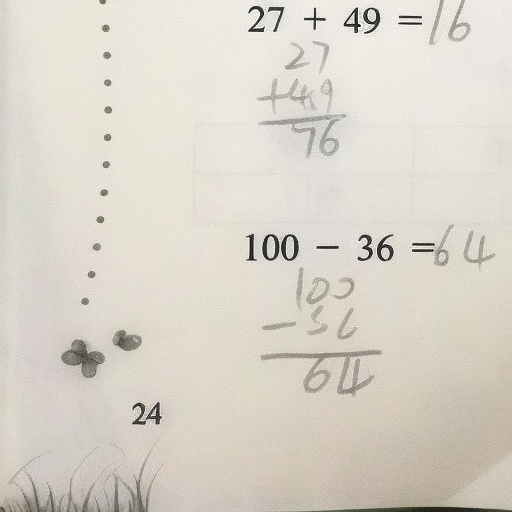 27 + 49 = 16
27
+49
76
100 − 36 = 64
100
−36
64
24